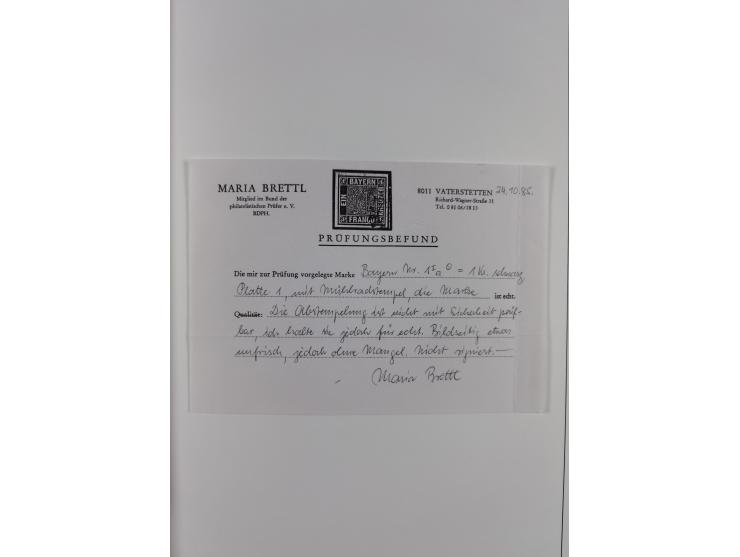 MARIA BRETTL
Mitglied im Bund der
philatelistischen Prüfer e. V.
BDPH.
BAYERN
EIN
KREUZER
FRANCO
8011 VATERSTETTEN 24.10.85.
Richard-Wagner-Straße 11
Tel. 0 81 06/18 13
PRÜFUNGSBEFUND
Die mir zur Prüfung vorgelegte Marke Bayern Nr. 1 I a ⊙ = 1 Kr. schwarz
Platte 1, mit Mühlradstempel, die Marke ist echt.
Qualität: Die Abstempelung ist nicht mit Sicherheit prüf-
bar, ich halte sie jedoch für echt. Bildseitig etwas
unfrisch, jedoch ohne Mängel. Nicht signiert.—
Maria Brettl